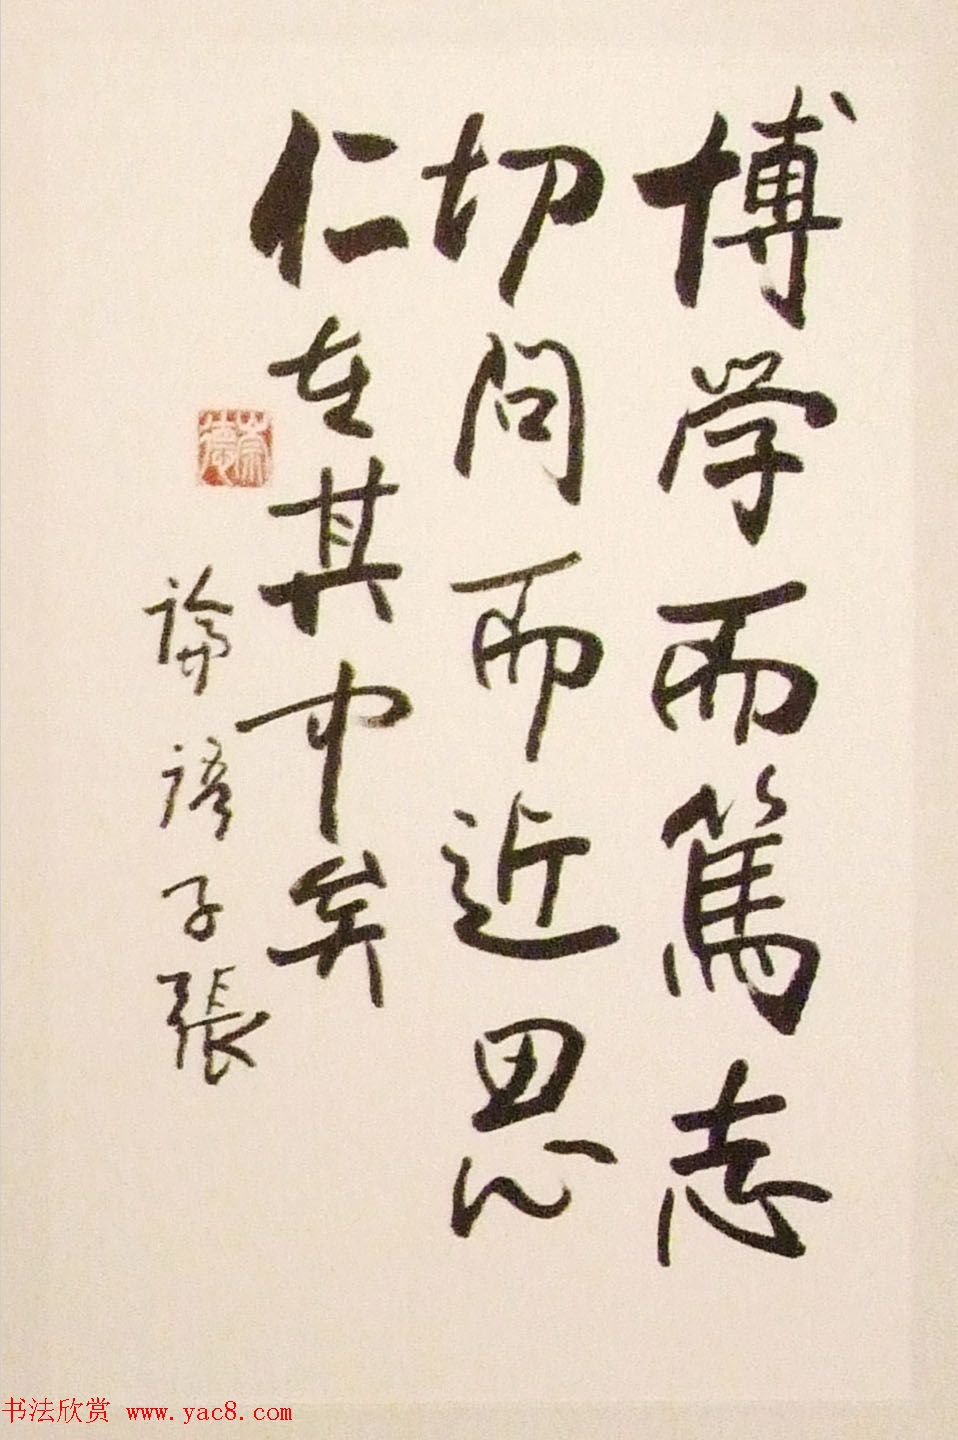 博学而篤志
切问而近思
仁在其中矣
論語子張
崇德
书法欣赏 www.yac8.com